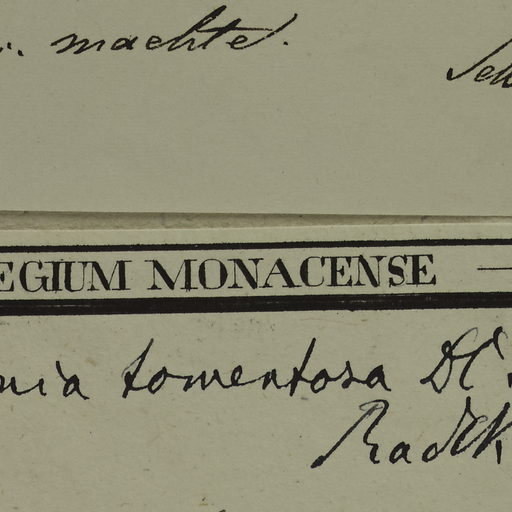 machte.
EGIUM MONACENSE
nia tomentosa DC
Radlk